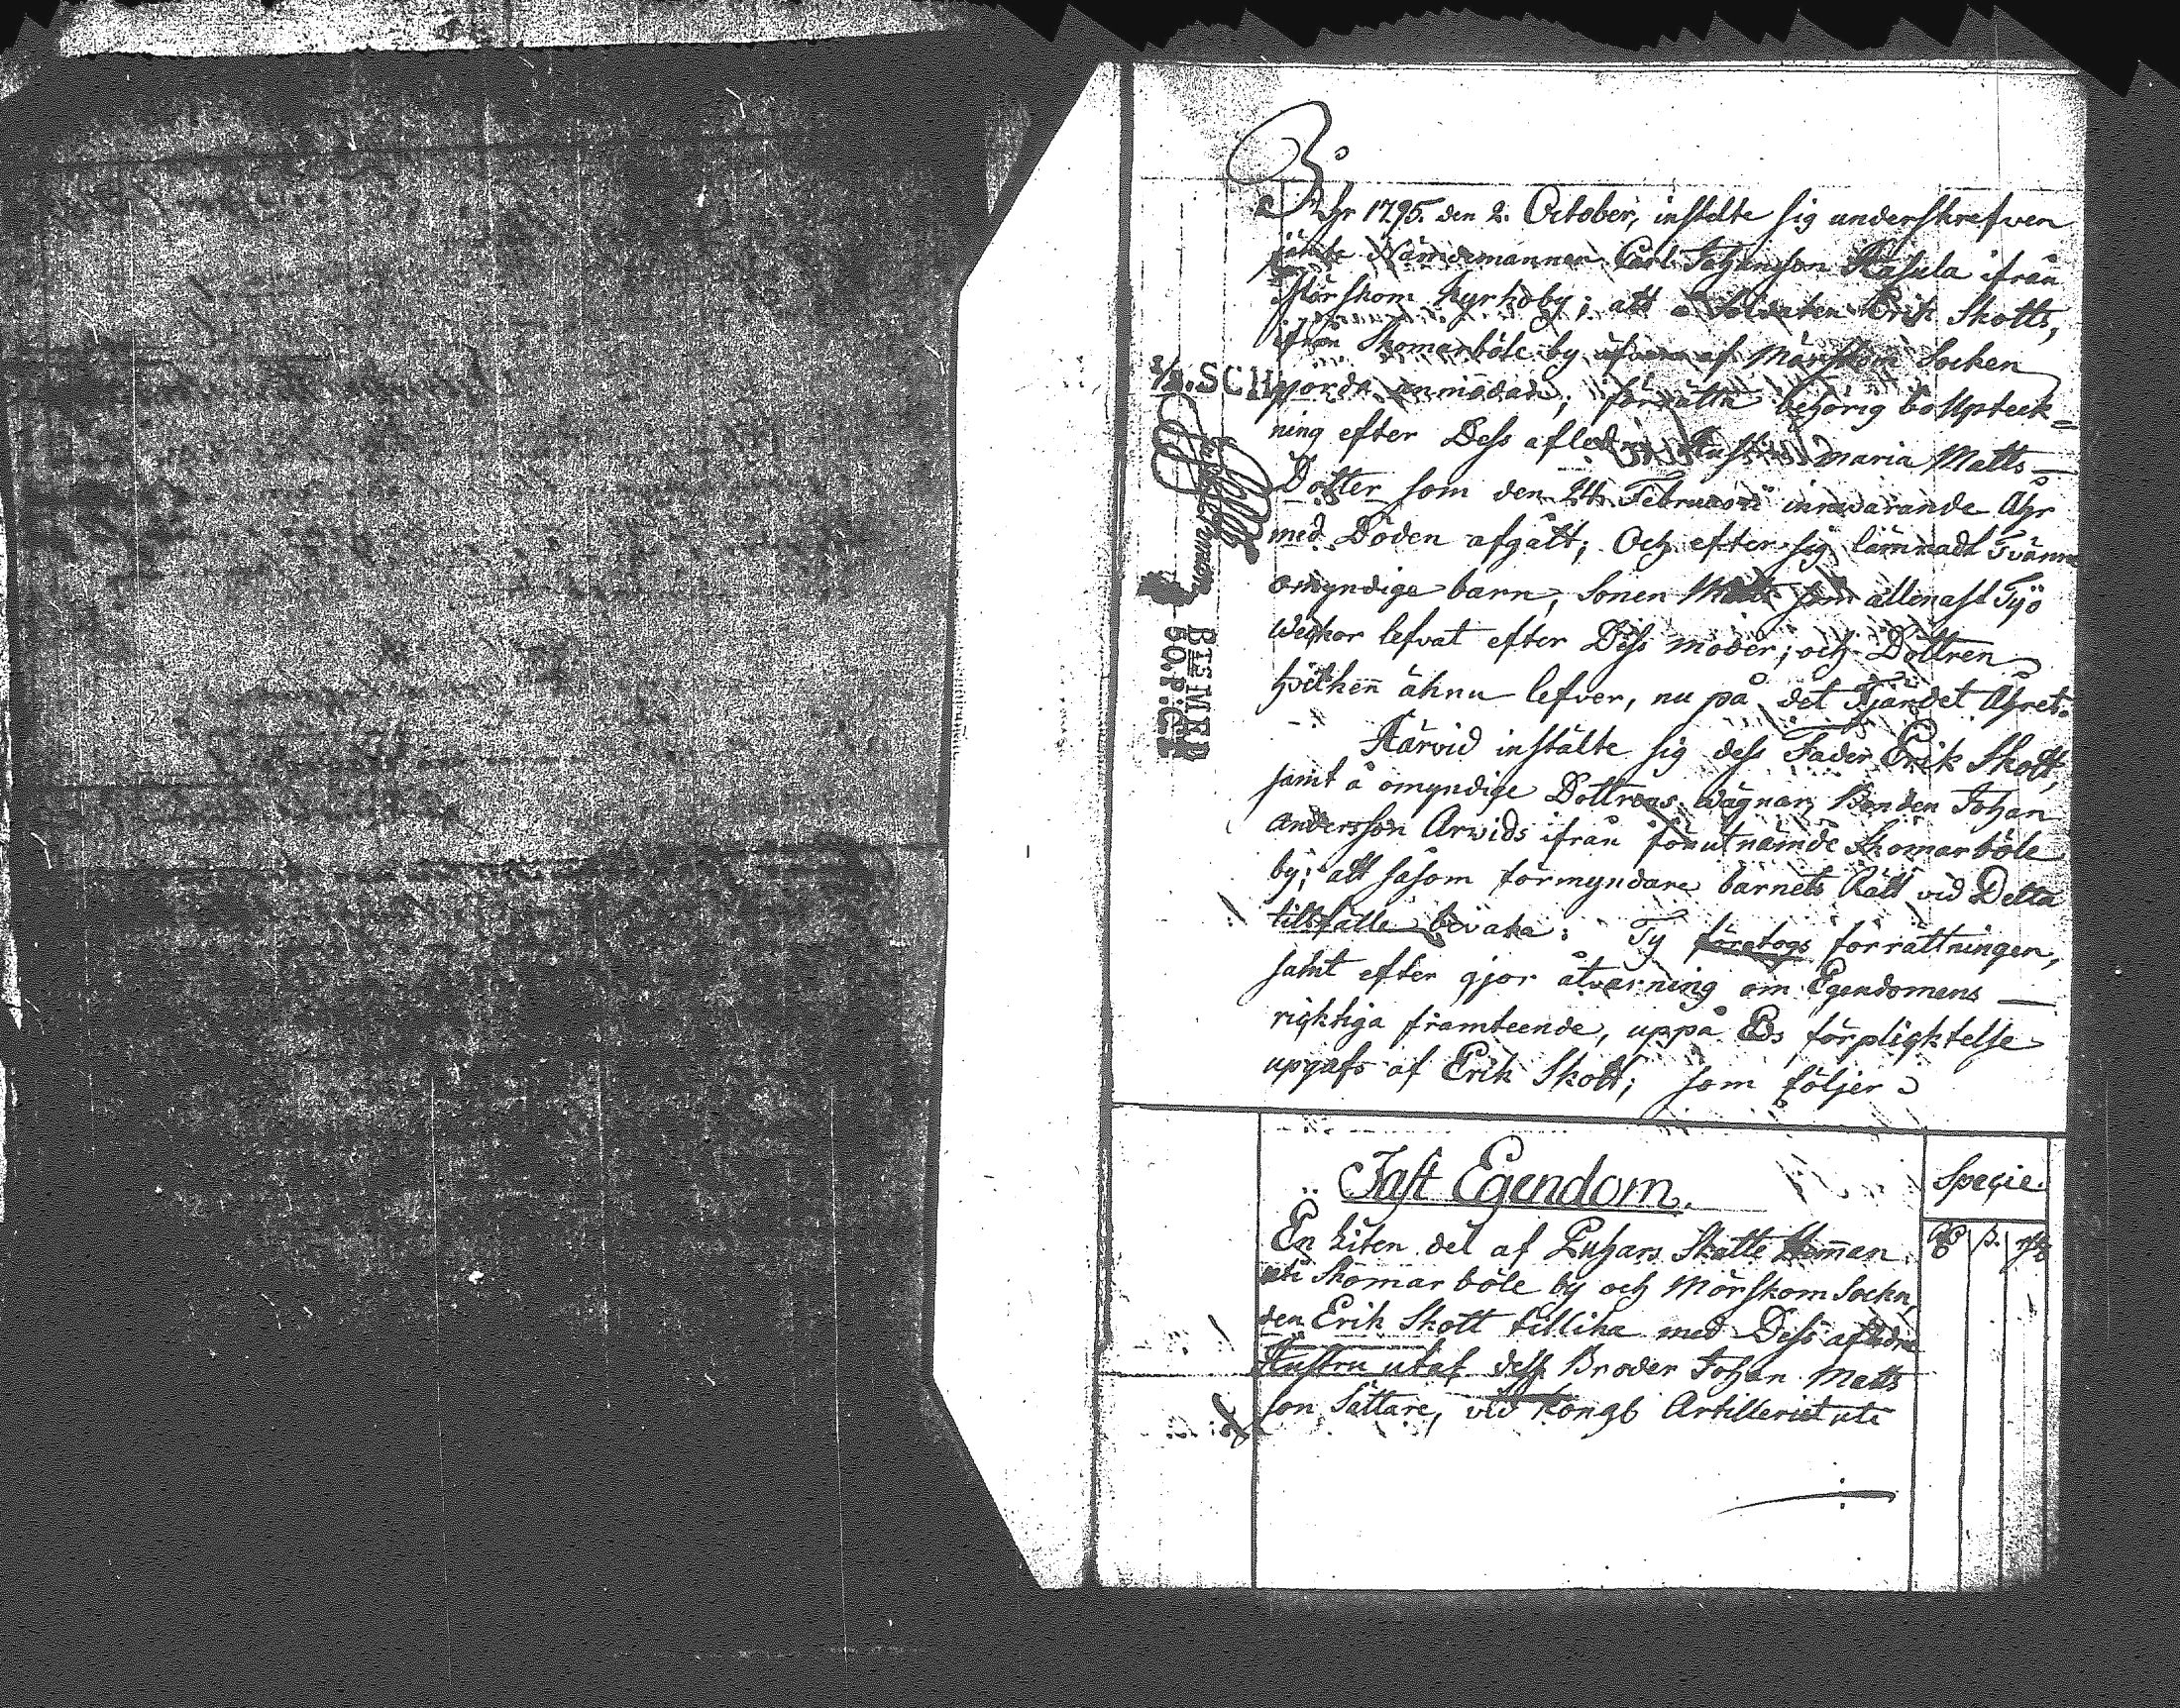 Åhr 1795. den 2. October, instelte sig underskrefven
jämte Nämdemannen Carl Johansson Kasula ifrån
Mörskom Kyrkoby; att å Soldaten Erik Skotts,
ifrån Skomarböle by af Mörskom Socken
gjorda anmodan, förrätta behörig bo Upteck=
ning efter Dess afledne Hustru Maria Matts
Dotter som den 24 Februarii innevarande Åhr
med Döden afgått; Och efter sig lämnadt Tvänne
omyndige barn, Sonen Matts som allenast Tyo
weckor lefvat efter Dess moder; och Dottren
hvilken ähnu lefver, nu på det Tjandet Åhret.
Härvid instälte sig dess Fader Erik Skott,
samt å omyndige Dottrens vägnar Bonden Johan
Andersson Arvids ifrån förutnämde Skomarböle
by; att såsom förmyndare barnets Rätt vid Detta
tillfälle bevaka: Ty företogs förrättningen,
samt efter gjor åtvarning om Egendomens
richtiga framteende, uppå Eds förplichtelse
upgafs af Erik Skott; som följer
3/4.SCH
BTEMED
60.P.CT
Fast Egendom.
Specie.
En Liten del af Luhars Skatte Hemman
uti Skomarböle by och Mörskom Sockn,
den Erik Skott tillika med Dess afledne
Hustru utaf dess Broder Johan Matts
son Sättare, vid Kongl Artilleriet uti